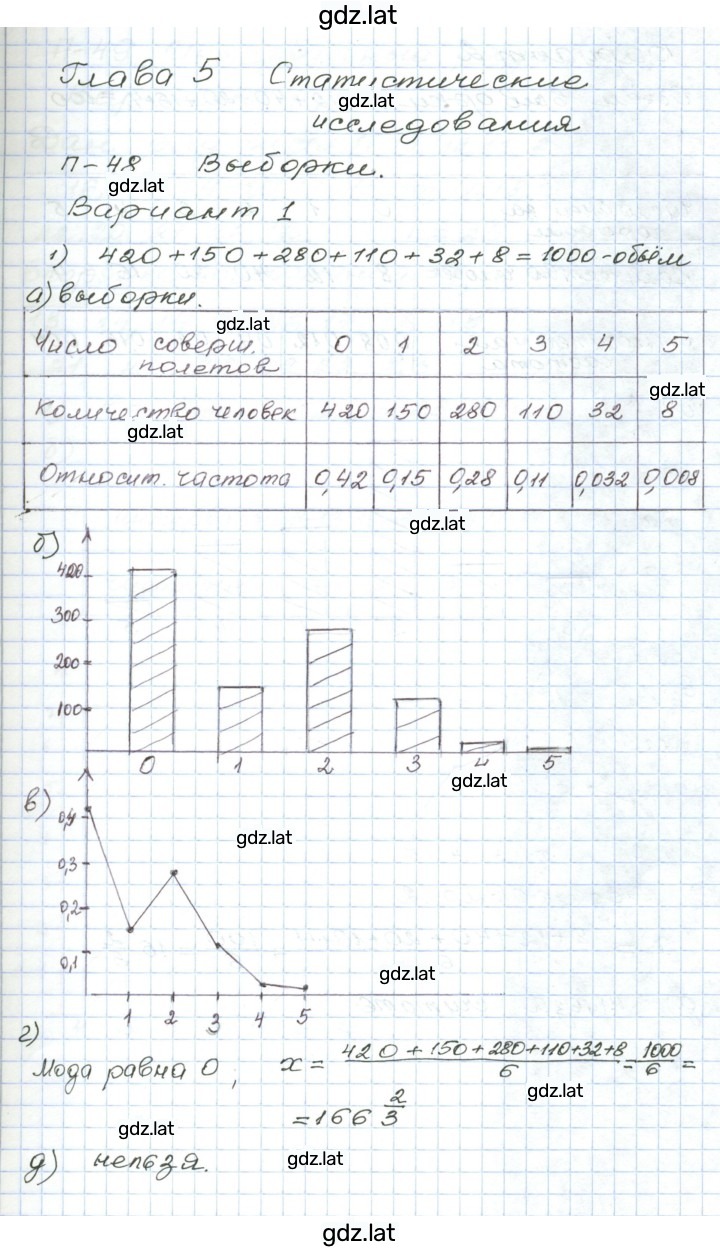 gdz.lat
Глава 5 Статистические
gdz.lat
исследования
П-48 Выборки.
gdz.lat
Вариант 1
1) 420+150+280+110+32+8=1000-объём
а) выборки.
gdz.lat
Число соверш. полетов 0 1 2 3 4 5
gdz.lat
Количество человек 420 150 280 110 32 8
gdz.lat
Относит. частота 0,42 0,15 0,28 0,11 0,032 0,008
gdz.lat
б)
420
300
200
100
0 1 2 3 4 5
gdz.lat
в)
0,4
gdz.lat
0,3
0,2
0,1
gdz.lat
1 2 3 4 5
г)
Мода равна 0, x = (420+150+280+110+32+8)/6 = 1000/6 =
gdz.lat
= 166 2/3
gdz.lat
д) нельзя.
gdz.lat
gdz.lat